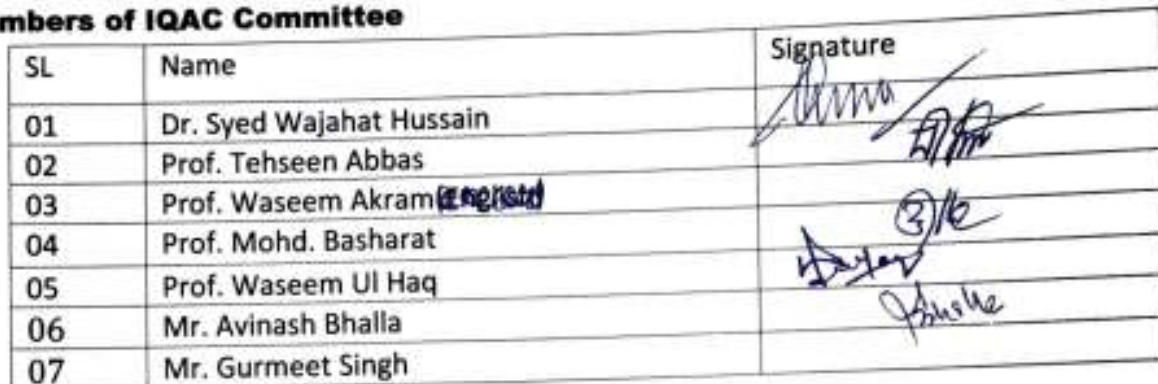 mbers of IQAC Committee
SL Name Signature
01 Dr. Syed Wajahat Hussain
02 Prof. Tehseen Abbas
03 Prof. Waseem Akram
04 Prof. Mohd. Basharat
05 Prof. Waseem Ul Haq
06 Mr. Avinash Bhalla
07 Mr. Gurmeet Singh